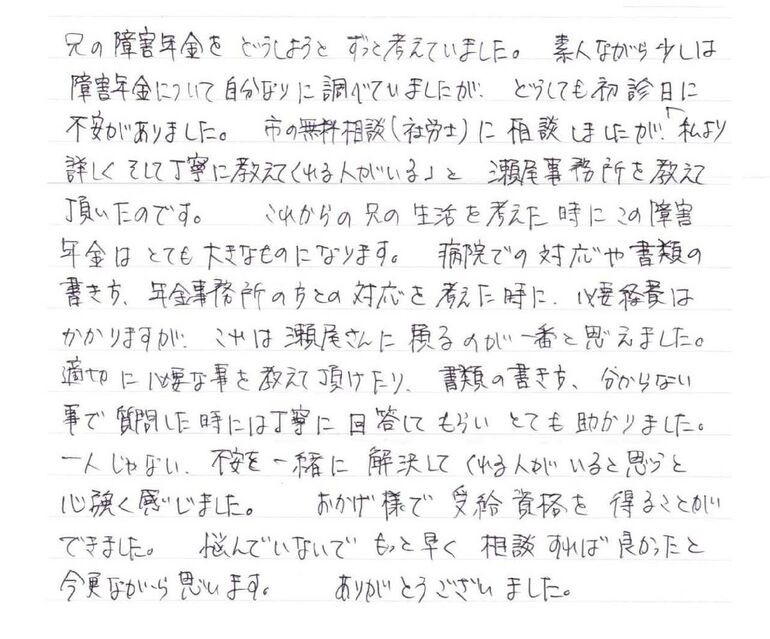 兄の障害年金をどうしようとずっと考えていました。 素人ながら少しは
障害年金について自分なりに調べていましたが、どうしても初診日に
不安がありました。 市の無料相談(社労士)に相談しましたが、「私より
詳しくそして丁寧に教えてくれる人がいる」と 瀬尾事務所を教えて
頂いたのです。 これからの兄の生活を考えた時にこの障害
年金はとても大きなものになります。 病院での対応や書類の
書き方、年金事務所の方との対応を考えた時に、必要経費は
かかりますが、これは瀬尾さんに頼るのが一番と思えました。
適切に必要な事を教えて頂けたり、書類の書き方、分からない
事で質問した時には丁寧に回答してもらいとても助かりました。
一人じゃない、不安を一緒に解決してくれる人がいると思うと
心強く感じました。 おかげ様で受給資格を得ることが
できました。 悩んでいないでもっと早く相談すれば良かったと
今更ながら思います。 ありがとうございました。